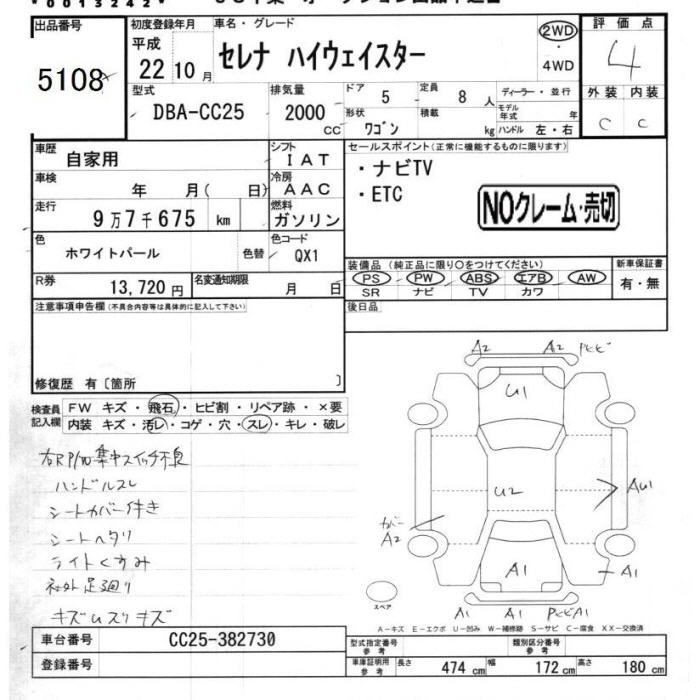 出品番号 初度登録年月 車名・グレード 評価点
5108 平成 22 10月 セレナ ハイウェイスター 2WD 4WD 4
型式 排気量 ドア 5 定員 8人 ディーラー・並行 外装 内装
DBA-CC25 2000 CC 形状 ワゴン 積載 kg モデル年式 年 ハンドル 左・右 C C
車歴 自家用 シフト IAT セールスポイント(正常に機能するものに限ります)
車検 年 月( 日) 冷房 AAC ・ナビTV
走行 9万7千675 km 燃料 ガソリン ・ETC
NOクレーム・売切
色 ホワイトパール 色替 色コード QX1
装備品(純正品に限り○をつけてください) 新車保証書
PS PW ABS エアB AW 有・無
SR ナビ TV カワ
R券 13,720円 名変通知期限 月 日
注意事項申告欄(不具合内容等は具体的に記入して下さい) 後日品
修復歴 有〔箇所 〕
検査員記入欄 FW キズ・飛石・ヒビ割・リペア跡・×要
内装 キズ・汚レ・コゲ・穴・スレ・キレ・破レ
右R P/W 集中スイッチ不良
ハンドルスレ
シートカバー付き
シートヘタリ
ライトくすみ
社外足廻り
キズ ムスリキズ
A2 A2
U1
U2 AU1
カバー A2
A1 A1
スペア A1 A1 A1
A-キズ E-エクボ U-凹み W-補修跡 S-サビ C-腐食 XX-交換済
車台番号 CC25-382730 型式指定番号 参考 類別区分番号 参考
登録番号 車庫証明用 参考 長さ 474cm 幅 172cm 高さ 180cm